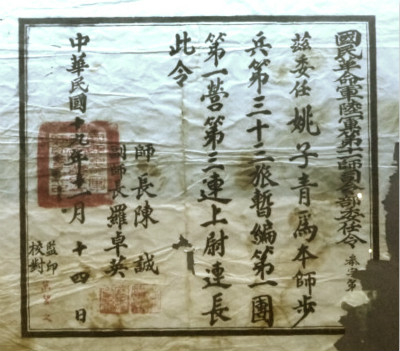 國民革命軍陸軍第十一師司令部委任令
茲委任姚子青為本師步
兵第三十三旅暫編第一團
第一營第三連上尉連長
此令
師長陳誠
副師長羅卓英
中華民國十九年十一月十四日
監印
校對